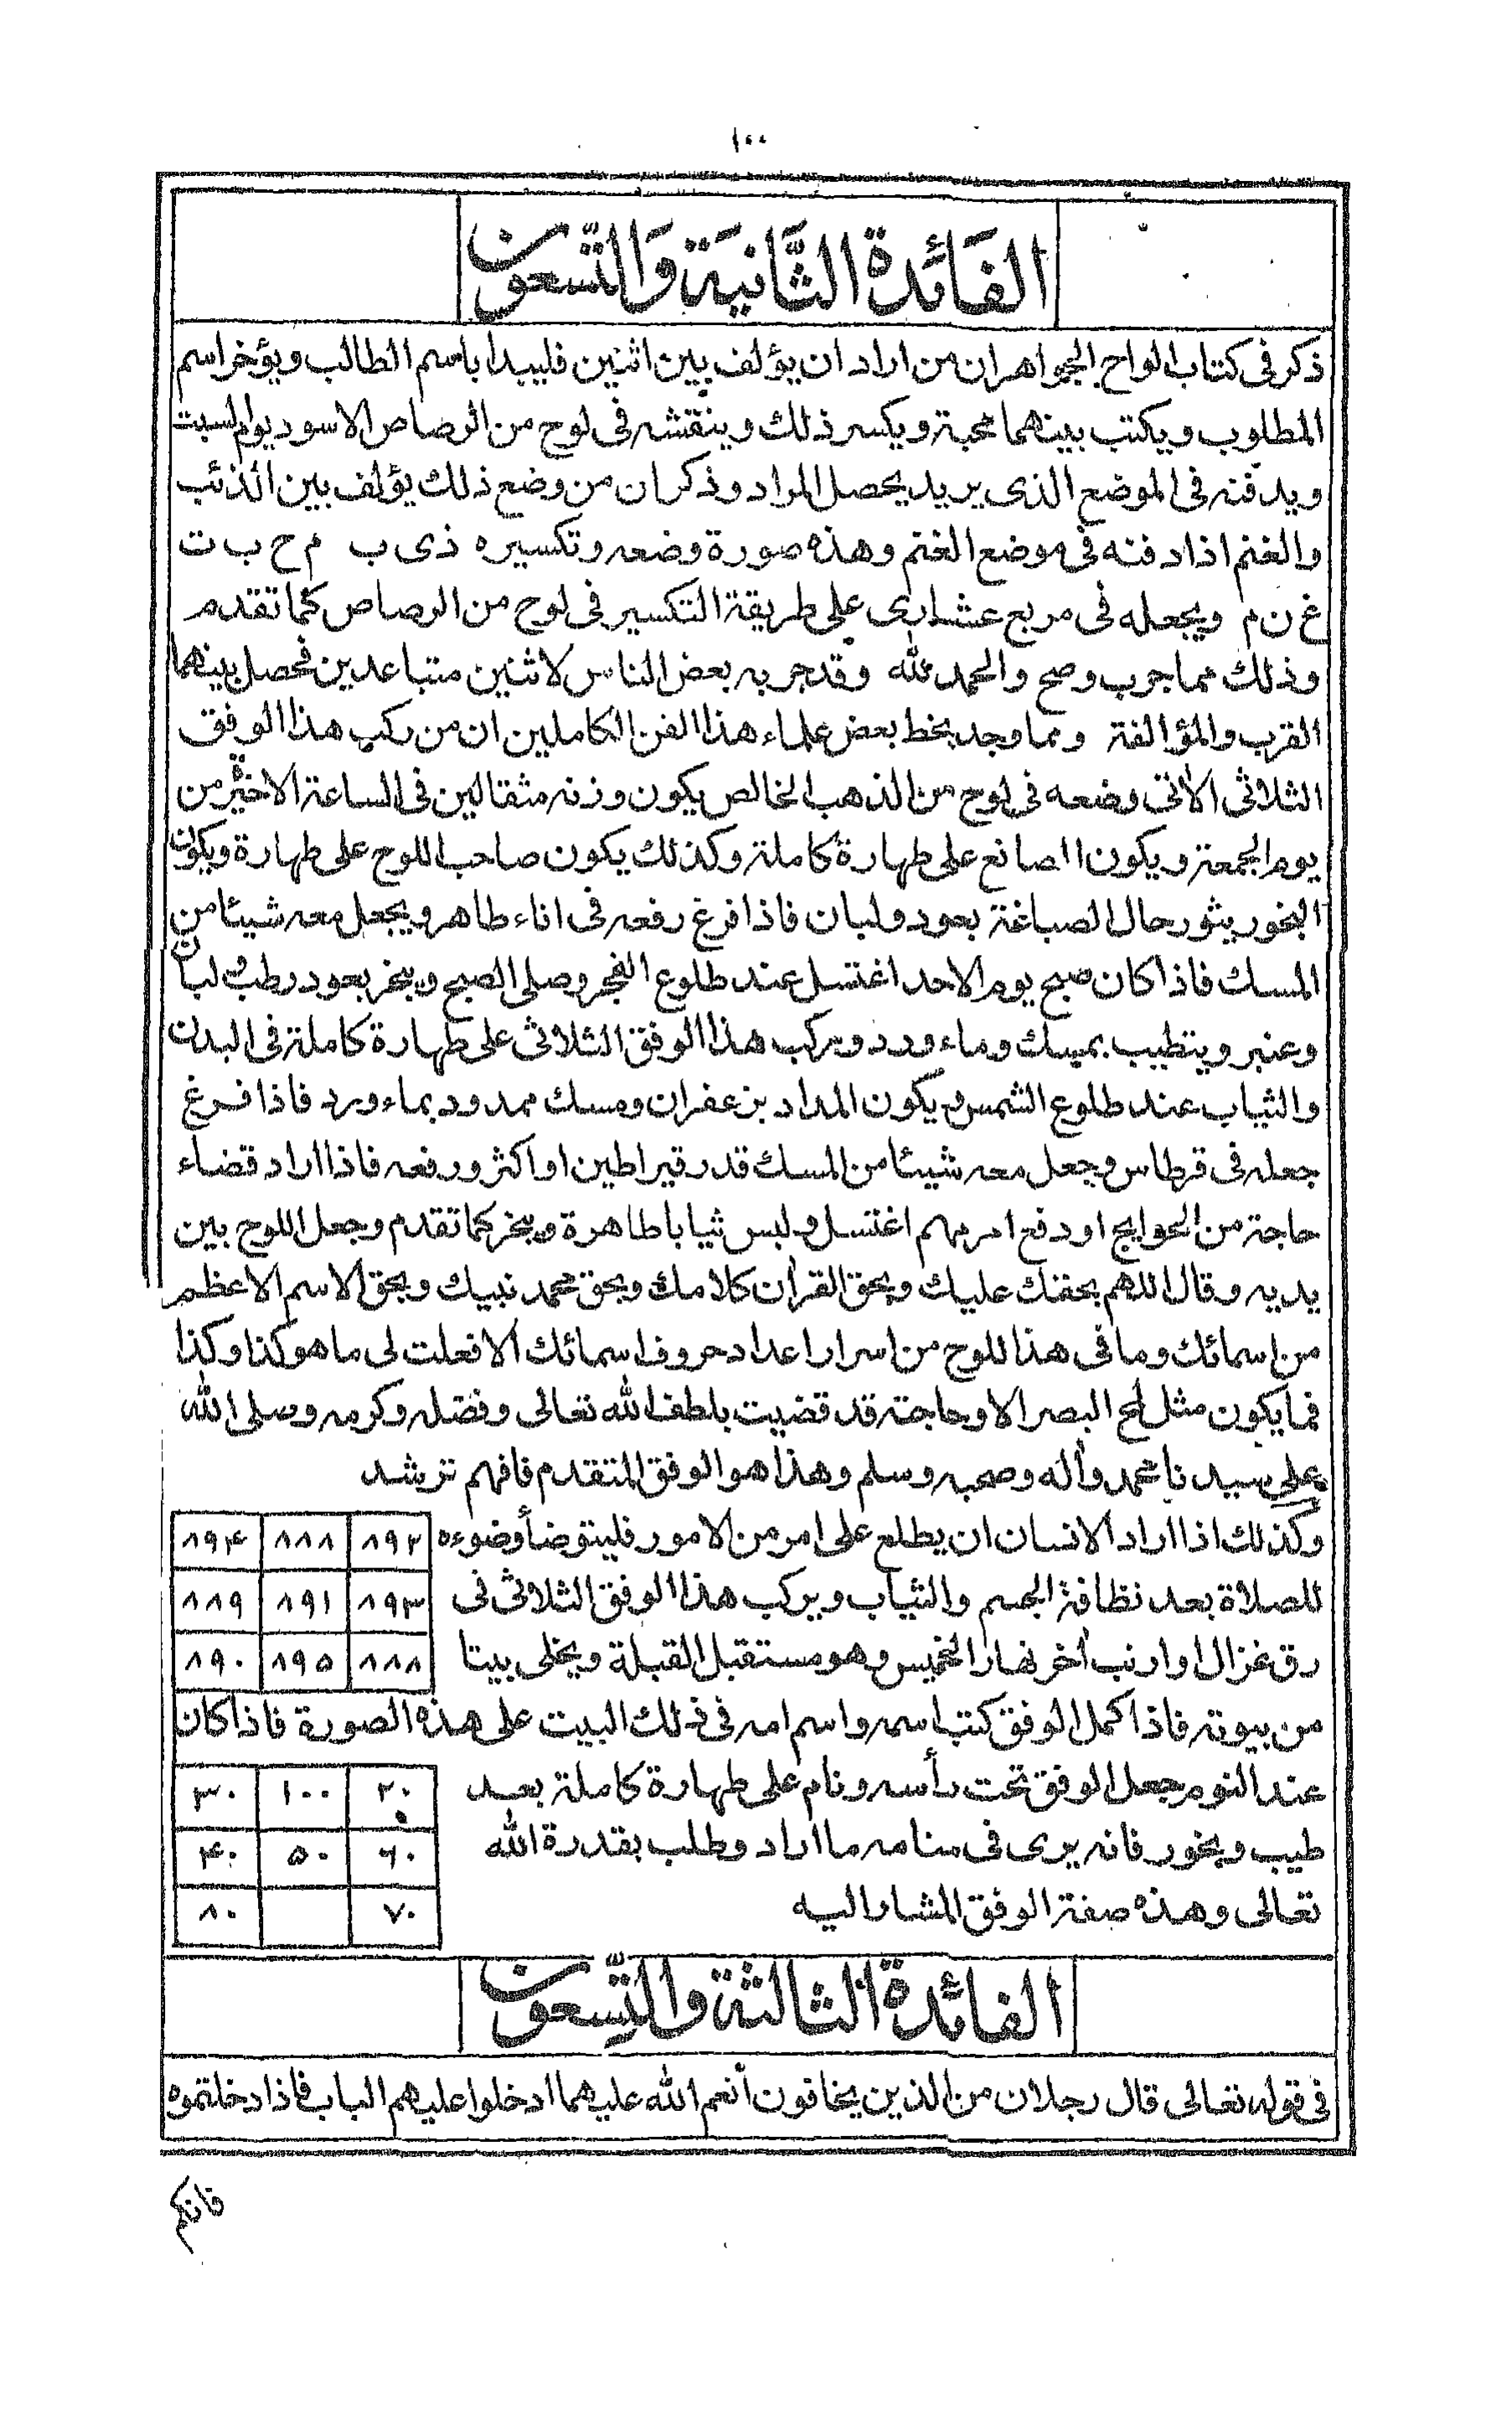 ١٠٠
الفَائدة الثَّانيَة وَالتّسعون
ذكر فى كتاب الواح الجواهر ان من اراد ان يؤلف بين اثنين فليبدا باسم الطالب ويؤخر اسم
المطلوب ويكتب بينهما محبة ويكسر ذلك وينقشه فى لوح من الرصاص الاسود يوم السبت
ويدفنه فى الموضع الذى يريد يحصل المراد وذكر ان من وضع ذلك يؤلف بين الذئب
والغنم اذا دفنه فى موضع الغنم وهذه صورة وضعه وتكسيره ذ ى ب م ح ب ت
غ ن م ويجعله فى مربع عشارى على طريقة التكسير فى لوح من الرصاص كما تقدم
وذلك مما جرب وصح والحمد لله وقد جربه بعض الناس لاثنين متباعدين فحصل بينهما
القرب والمؤالفة ومما وجد بخط بعض علماء هذا الفن الكاملين ان من ركب هذا الوفق
الثلاثى الآتى وضعه فى لوح من الذهب الخالص يكون وزنه مثقالين فى الساعة الاخيرة من
يوم الجمعة ويكون الصانع على طهارة كاملة وكذلك يكون صاحب اللوح على طهارة ويكون
البخور يثور حال الصباغة بعود ولبان فاذا فرغ رفعه فى اناء طاهر ويجعل معه شيئا من
المسك فاذا كان صبح يوم الاحد اغتسل عند طلوع الفجر وصلى الصبح ويبخر بعود رطب ولبان
وعنبر ويتطيب بمسك وماء ورد ويركب هذا الوفق الثلاثى على طهارة كاملة فى البدن
والثياب عند طلوع الشمس ويكون المداد بزعفران ومسك ممدود بماء ورد فاذا فرغ
جعله فى قرطاس وجعل معه شيئا من المسك قدر قيراطين او اكثر ورفعه فاذا اراد قضاء
حاجة من الحوايج او دفع امر مهم اغتسل ولبس ثيابا طاهرة ويبخر كما تقدم وجعل اللوح بين
يديه وقال اللهم بحقك عليك وبحق القرآن كلامك وبحق محمد نبيك وبحق الاسم الاعظم
من اسمائك وما فى هذا للوح من اسرار اعداد حروف اسمائك الا فعلت لى ما هو كذا وكذا
فما يكون مثل لمح البصر الا وحاجته قد قضيت بلطف الله تعالى وفضله وكرمه وصلى الله
على سيدنا محمد وآله وصحبه وسلم وهذا هو الوفق المتقدم فافهم ترشد
وكذلك اذا اراد الانسان ان يطلع على امر من الامور فليتوضأ وضوءه
للصلاة بعد نظافة الجسم والثياب ويركب هذا الوفق الثلاثى فى
رق غزال او ارنب آخر نهار الخميس وهو مستقبل القبلة ويخلى بيتا
٨٩٢ ٨٨٨ ٨٩۴
٨٩٣ ٨٩١ ٨٨٩
٨٨٨ ٨٩٥ ٨٩٠
من بيوته فاذا كمل الوفق كتب اسمه واسم امه فى ذلك البيت على هذه الصورة فاذا كان
عند النوم جعل الوفق تحت رأسه ونام على طهارة كاملة بعد
طيب وبخور فانه يرى فى منامه ما اراد وطلب بقدرة الله
تعالى وهذه صفة الوفق المشار اليه
٢٠ ١٠٠ ٣٠
٦٠ ٥٠ ۴٠
٧٠ ٨٠
الفائدة الثالثة والتّسعون
فى قوله تعالى قال رجلان من الذين يخافون أنعم الله عليهما ادخلوا عليهم الباب فاذا دخلتموه
فانكم